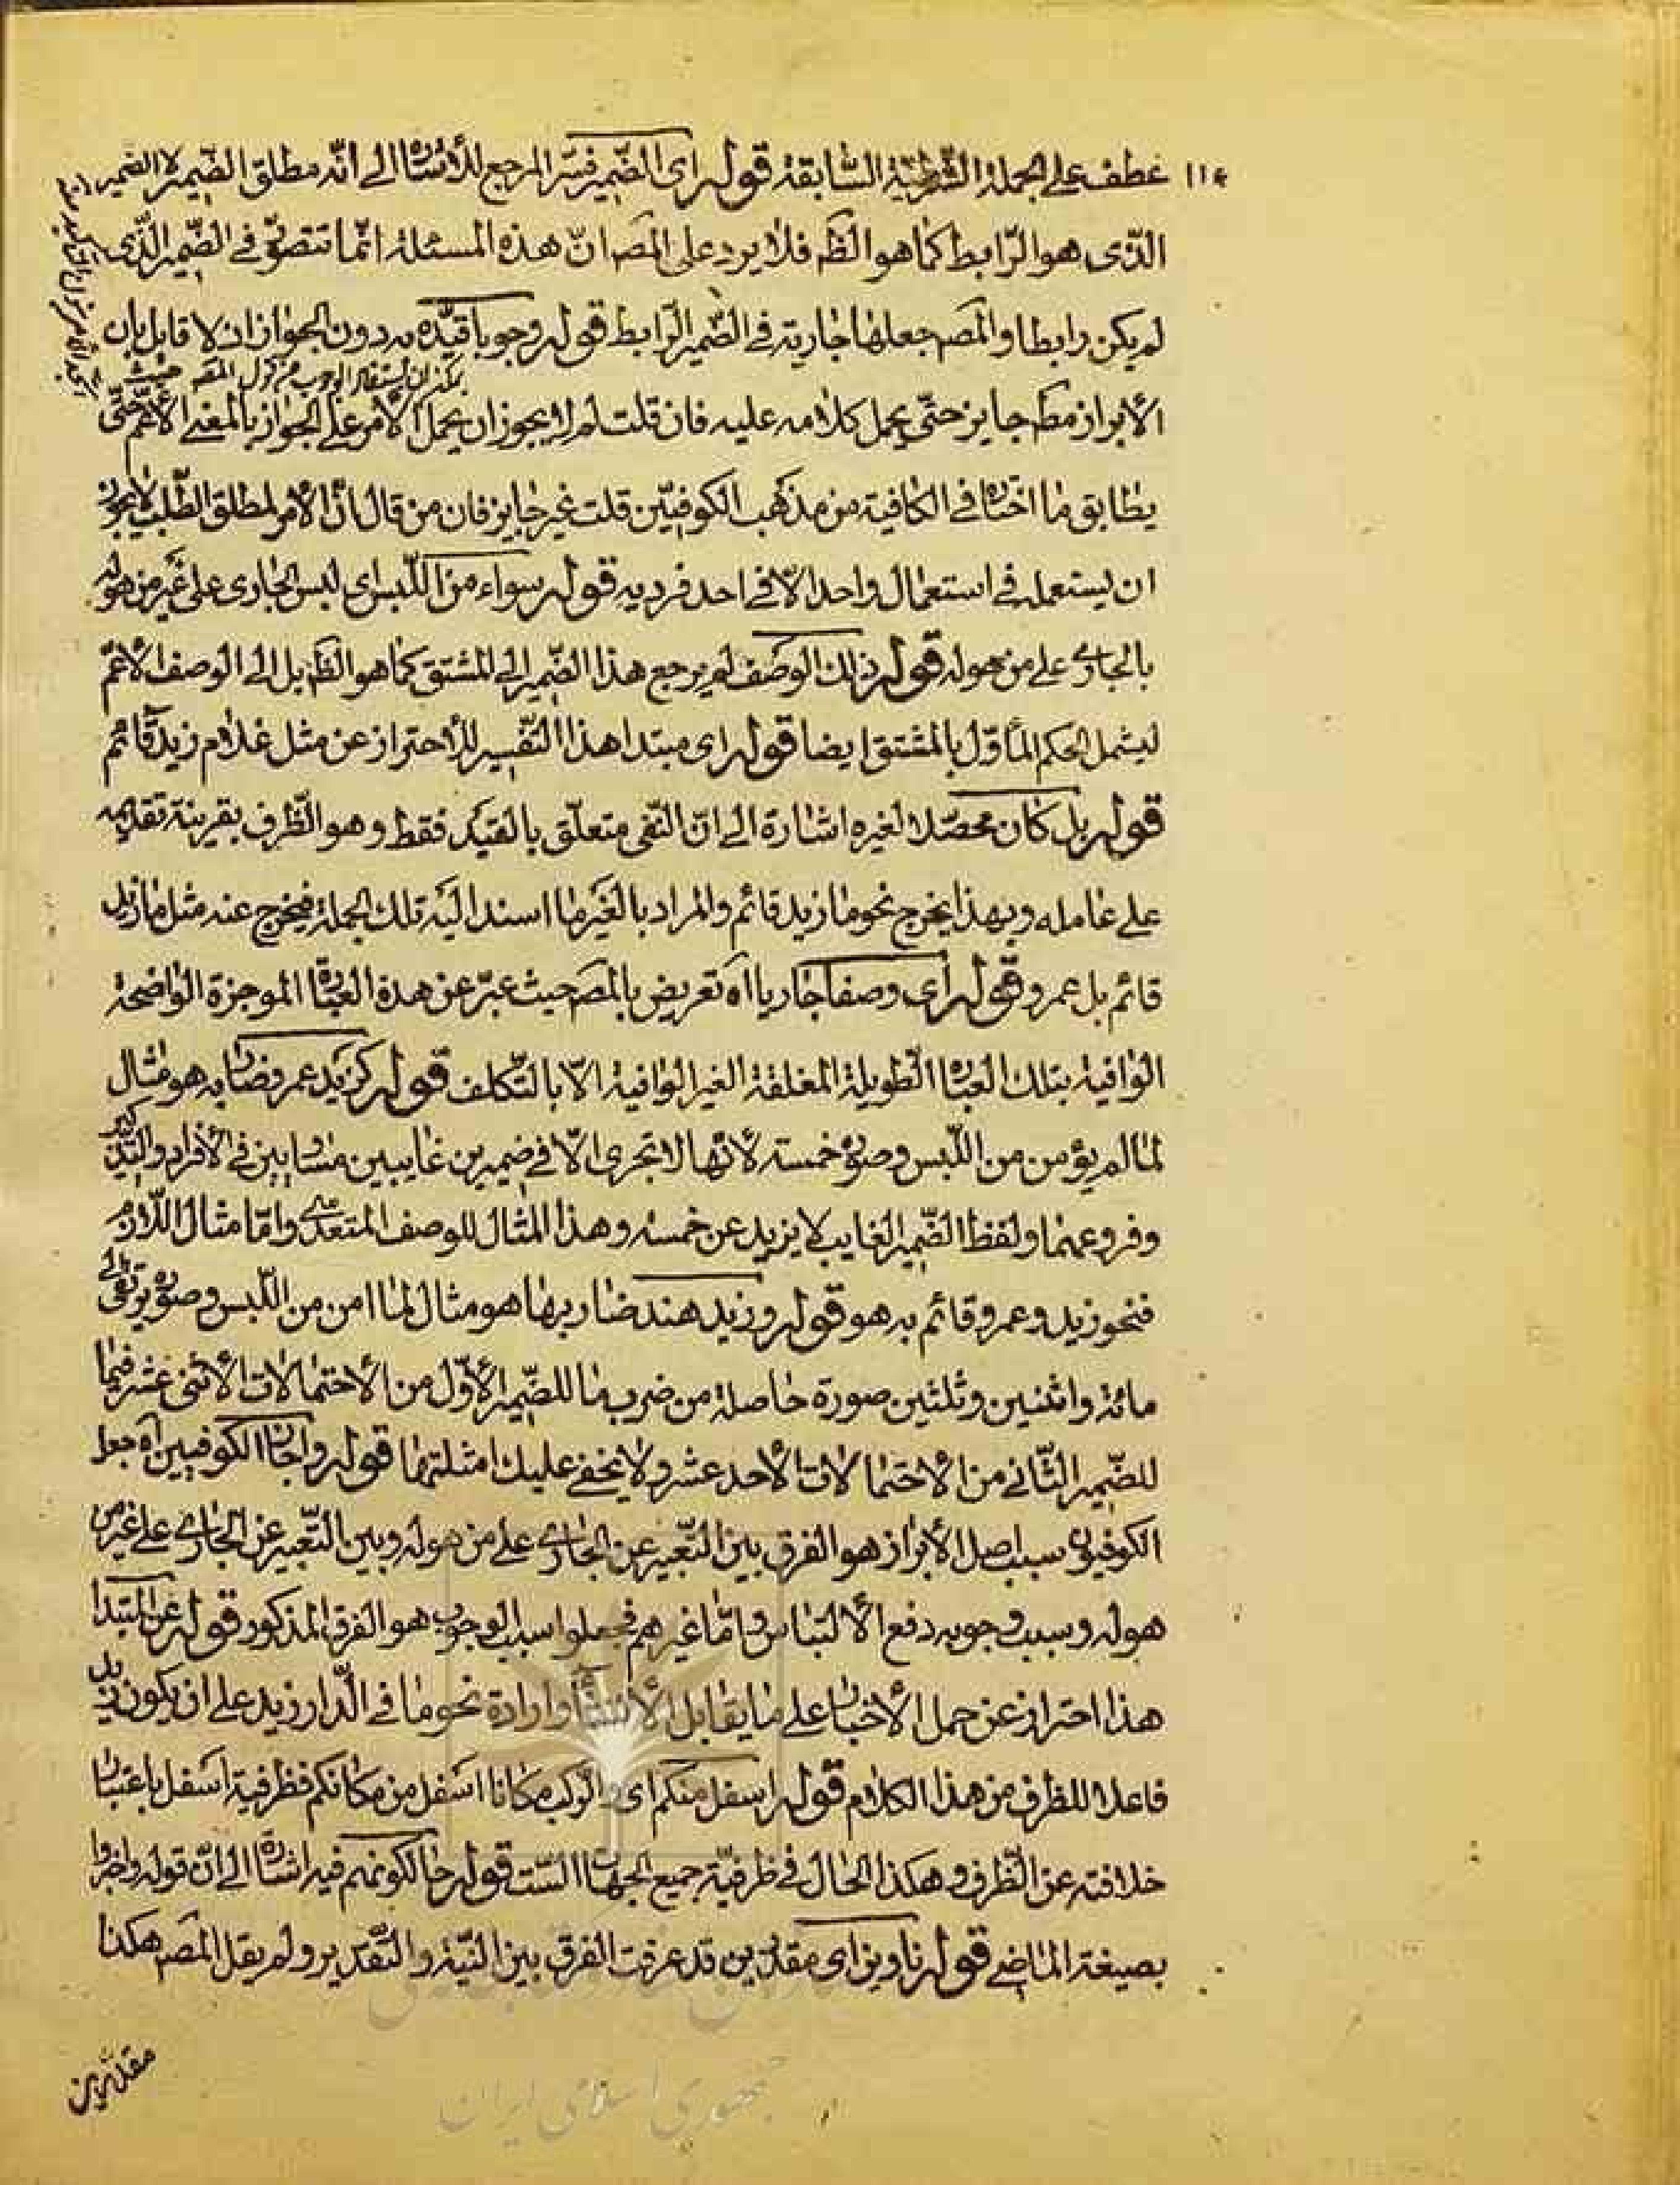 عطف على الجملة الشرطية السابقة قوله اى الضمير فسر المرجع للاشارة الى انه مطلق الضمير لا الضمير
الذى هو الرابط كما هو الظ فلا يرد على المص ان هذه المسئلة انما تتصور فى الضمير الذى
لم يكن رابطا والمص جعلها جارية فى الضمير الرابط قوله وجوبا قيده به دون الجواز اذ لا قابل بان
يمكن ان يستفاد الوجوب من قول المص حيث
الأبراز مط جايز حتى يحمل كلامه عليه فان قلت لم لا يجوز ان يحمل الأمر على الجواز بالمعنى الأعم حتى
يطابق ما اختاره فى الكافية من مذهب الكوفيين قلت غير جايز فان من قال بأن الأمر لمطلق الطلب لا يجوز
ان يستعمله فى استعمال واحد الا فى احد فرديه قوله سواء من اللبس اى لبس الجارى على غير من هو له
بالجارى على من هو له قوله ذلك الوصف لم يرجع هذا الضمير الى المشتق كما هو الظ بل الى الوصف الأعم
ليشمل الحكم المأول بالمشتق ايضا قوله اى مبتدا هذا التفسير للأحتراز عن مثل غلام زيد قائم
قوله بل كان محصلا لغيره اشارة الى ان النفى متعلق بالقيد فقط وهو الظرف بقرينة تقديمه
على عامله وبهذا يخرج نحو ما زيد قائم والمراد بالغير ما اسند اليه تلك الجملة فيخرج عنه مثل ما زيد
قائم بل عمرو قوله اى وصفا جاريا اه تعريض بالمص حيث عبر عن هذة العبارة الموجزة الواضحة
الوافية بتلك العبارة الطويلة المغلقة الغير الوافية الا بالتكلف قوله كزيد عمرو ضاربه هو مثال
لما لم يؤمن من اللبس وصوره خمسة لأنها لا تجرى الا فى ضميرين غايبين متساويين فى الأفراد والتذكير
وفروعهما ولفظ الضمير الغايب لا يزيد عن خمسة وهذا المثال للوصف المتعدى واما مثال اللازم
فنحو زيد وعمرو قائم به هو قوله وزيد هند ضاربها هو مثال لما امن من اللبس وصوره يرتقى الى
مائة واثنين وثلثين صورة حاصلة من ضرب ما للضمير الأول من الأحتمالات الأثنى عشر فيما
للضمير الثانى من الأحتمالات الأحد عشر ولا يخفى عليك امثلتها قوله واجاز الكوفيين اه جعل
الكوفيون سبب اصل الأبراز هو الفرق بين التعبير عن الجارى على من هو له وبين التعبير عن الجارى على غير من
هو له وسبب وجوبه دفع الألتباس واما غيرهم فجعلوا سبب الوجوب هو الفرق المذكور قوله عن المبتدا
هذا احتراز عن حمل الأخبار على ما يقابل الأنشاء وارادة نحو ما فى الدار زيد على ان يكون زيد
فاعلا للظرف من هذا الكلام قوله اسفل منكم اى والركب مكانا اسفل من مكانكم فظرفية اسفل باعتبار
خلافته عن الظرف وهكذا الحال فى ظرفية جميع الجهات الست قوله حالكونهم فيه اشارة الى ان قوله واخبروا
بصيغة الماضى قوله ناوين اى مقدرين قد عرفت الفرق بين النية والتقدير ولم يقل المص هكذا
مقدرين
جمهوری اسلامی ایران